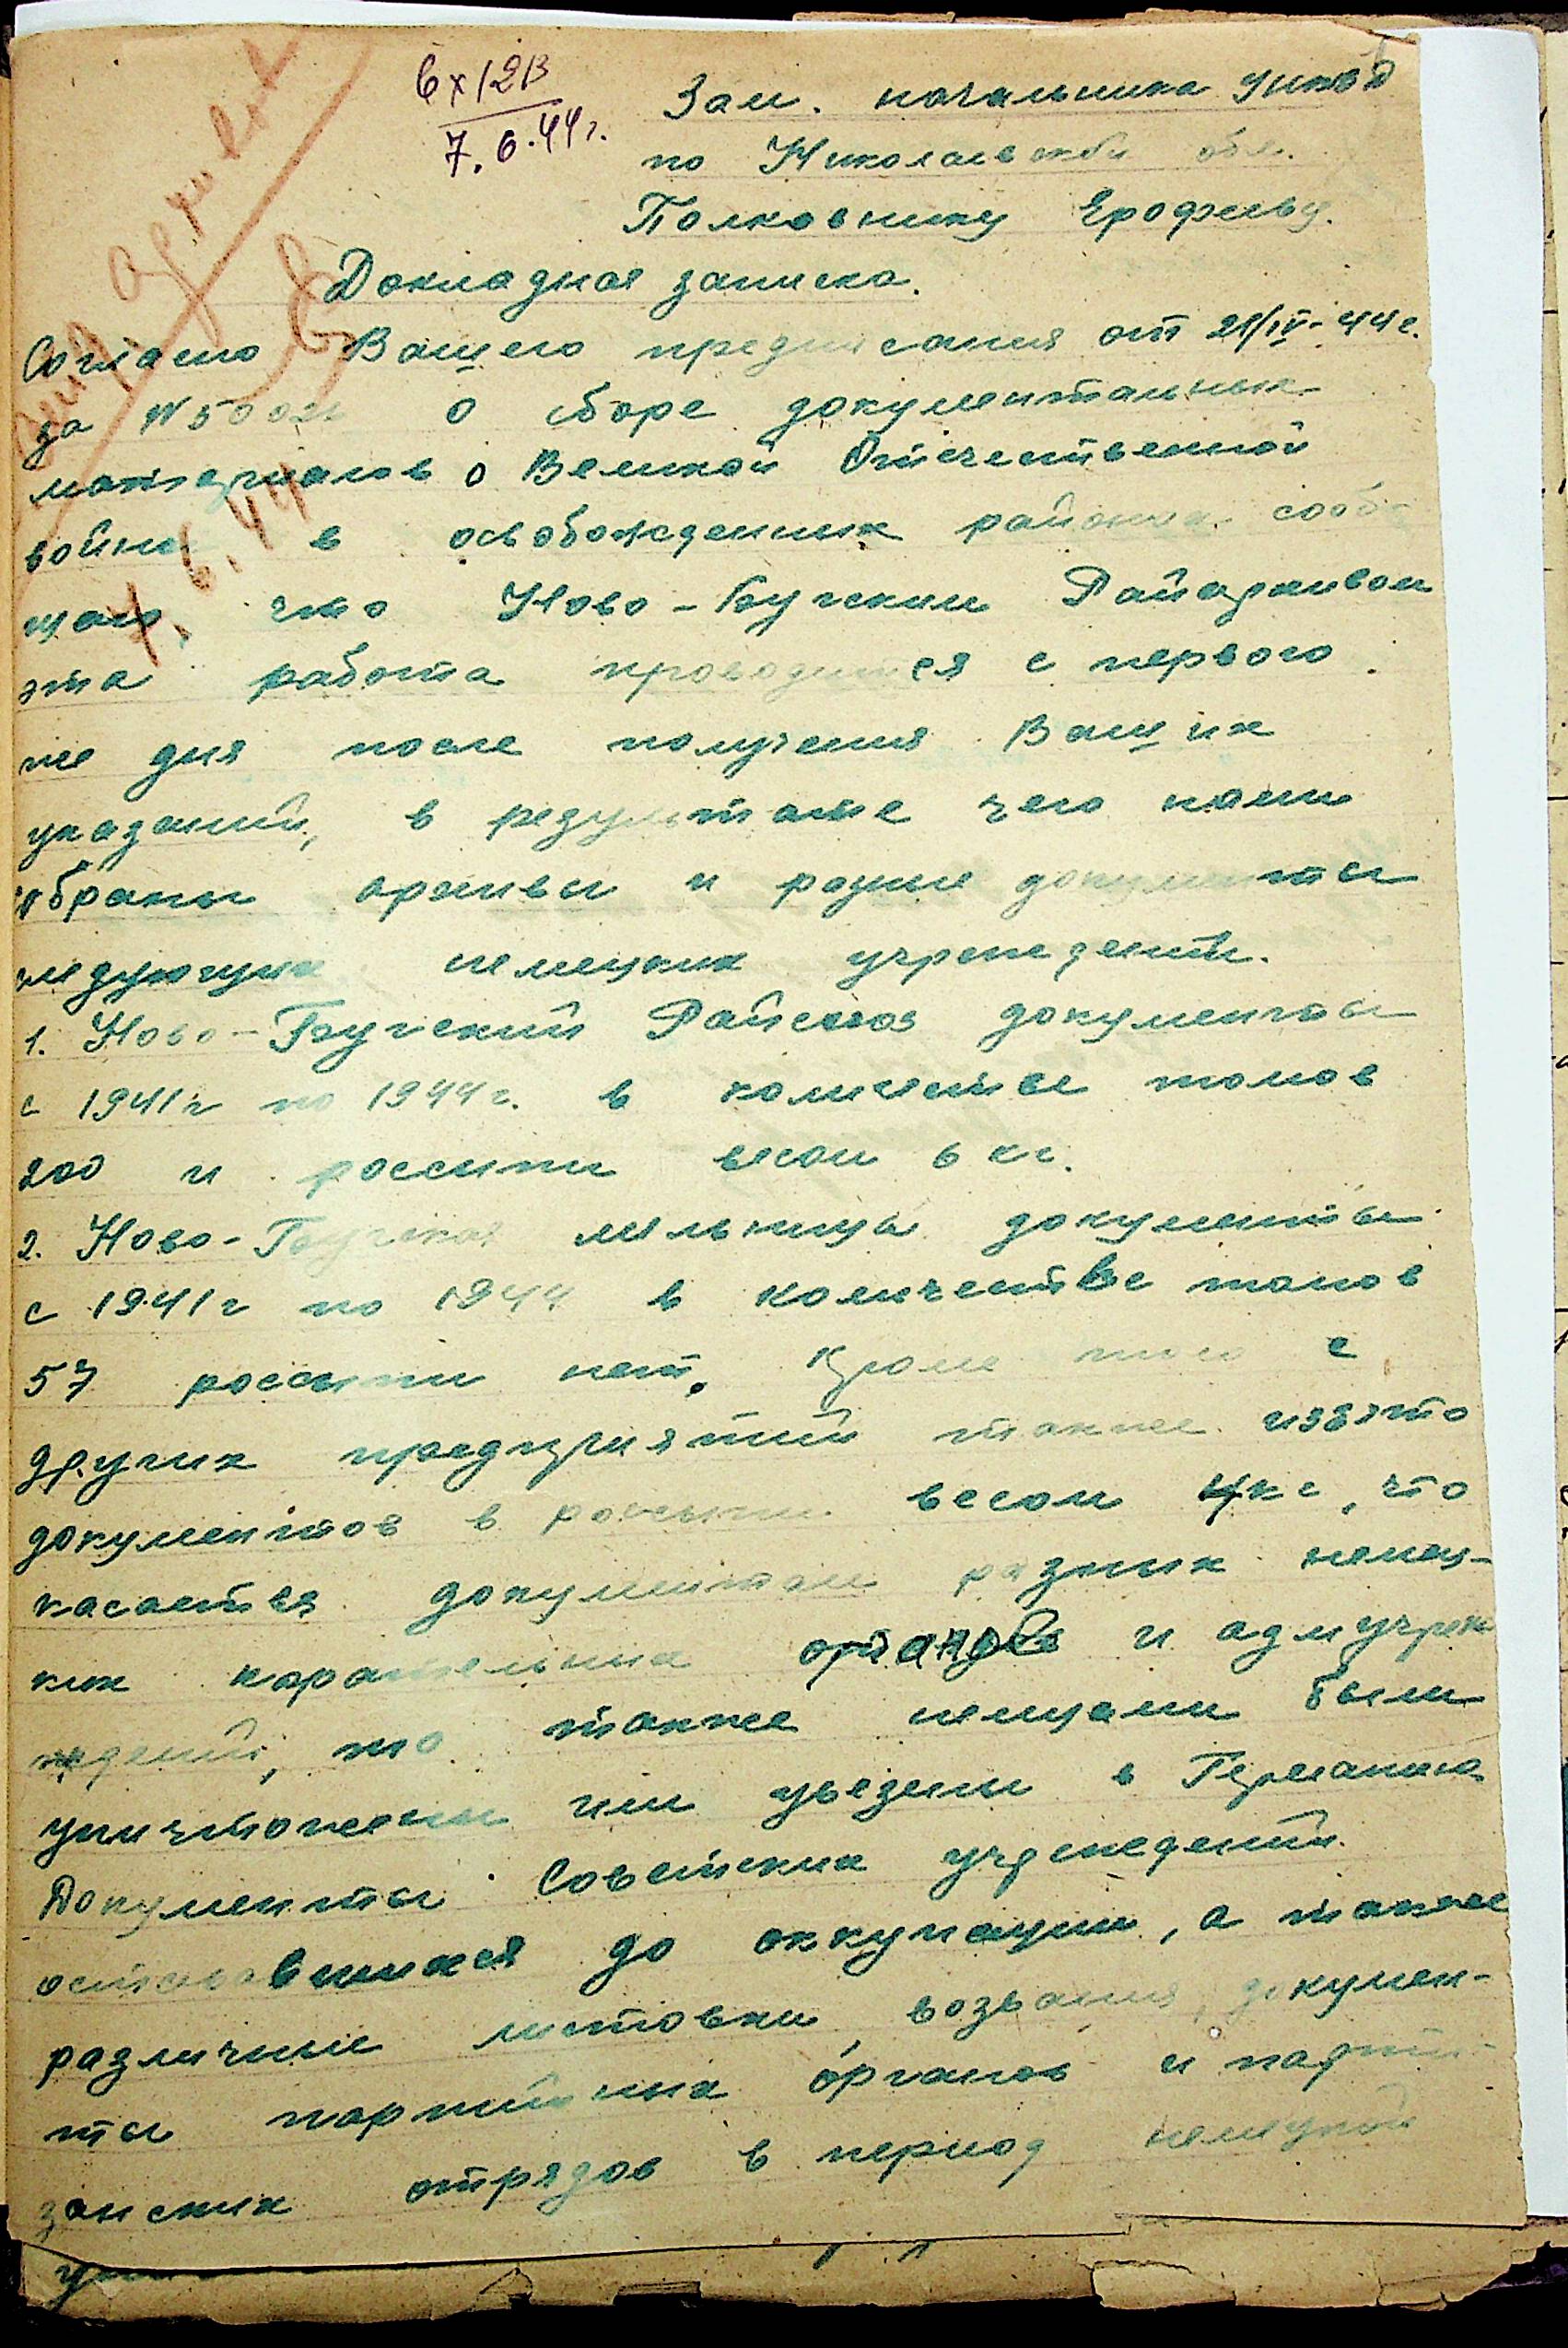 Вх 1213
7.6.44г.
Зам. начальника УНКВД
по Николаевской обл.
Полковнику Ерофееву.
Докладная записка.
Согласно Вашего предписания от 21/IV-44г.
за № о сборе документальных
материалов о Великой Отечественной
войны в освобожденных районах сооб-
щаю, что Ново-Бугским Райархивом
эта работа проводится с первого
же дня после получения Ваших
указаний, в результате чего нами
собраны архивы и разные документы
следующих немецких учреждений.
1. Ново-Бугский Райсоюз документы
с 1941г по 1944г. в количестве томов
200 и россыпи весом 6 кг.
2. Ново-Бугская мельницы документы
с 1941г по 1944 в количестве томов
57 россыпи нет. Кроме того с
других предприятий также изъято
документов в россыпи весом 4кг, что
касается документам разных немец-
ких карательных органов и адмучреж
ждений, то также немцами были
уничтожены или увезены в Германию
Документы Советских учреждений
оставшихся до оккупации, а также
различные листовки, возвания, докумен-
ты партийных органов и парти-
занских отрядов в период немецкой
7.6.44